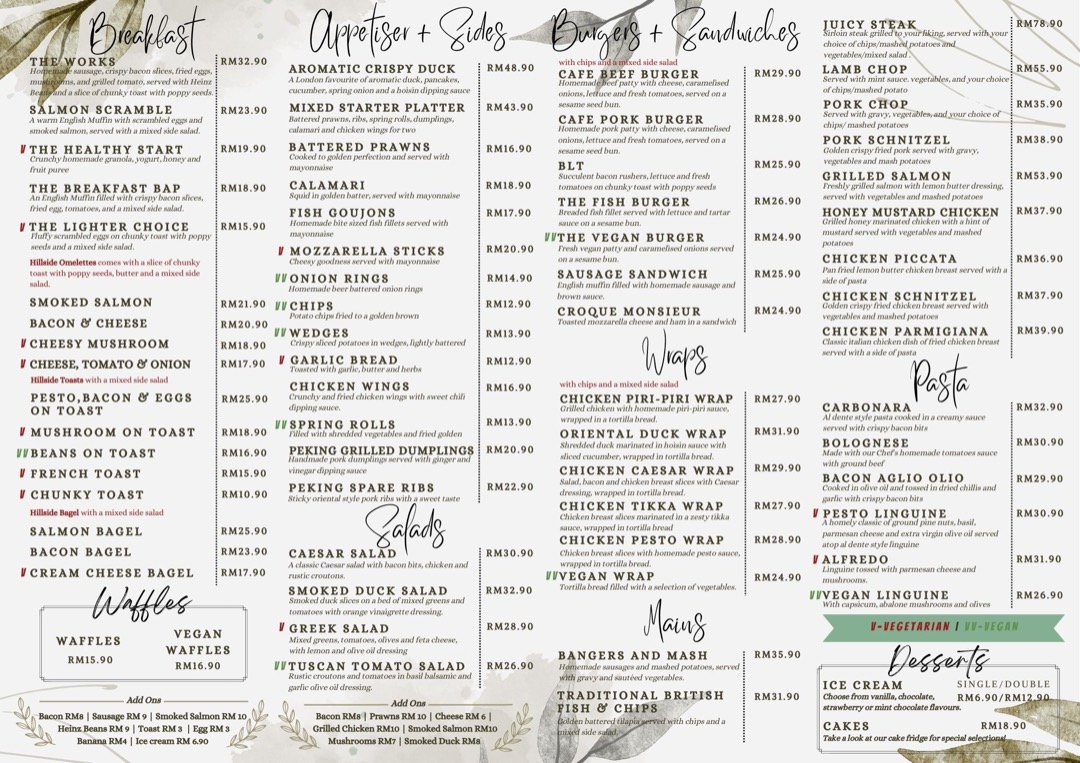 Breakfast
THE WORKS RM32.90
Homemade sausage, crispy bacon slices, fried eggs,
mushrooms, and grilled tomato, served with Heinz
Beans and a slice of chunky toast with poppy seeds.
SALMON SCRAMBLE RM23.90
A warm English Muffin with scrambled eggs and
smoked salmon, served with a mixed side salad.
V THE HEALTHY START RM19.90
Crunchy homemade granola, yogurt, honey and
fruit puree
THE BREAKFAST BAP RM18.90
An English Muffin filled with crispy bacon slices,
fried egg, tomatoes, and a mixed side salad.
V THE LIGHTER CHOICE RM15.90
Fluffy scrambled eggs on chunky toast with poppy
seeds and a mixed side salad.
Hillside Omelettes comes with a slice of chunky
toast with poppy seeds, butter and a mixed side
salad.
SMOKED SALMON RM21.90
BACON & CHEESE RM20.90
V CHEESY MUSHROOM RM18.90
V CHEESE, TOMATO & ONION RM17.90
Hillside Toasts with a mixed side salad
PESTO,BACON & EGGS RM25.90
ON TOAST
V MUSHROOM ON TOAST RM18.90
VV BEANS ON TOAST RM16.90
V FRENCH TOAST RM15.90
V CHUNKY TOAST RM10.90
Hillside Bagel with a mixed side salad
SALMON BAGEL RM25.90
BACON BAGEL RM23.90
V CREAM CHEESE BAGEL RM17.90
Waffles
WAFFLES
RM15.90
VEGAN
WAFFLES
RM16.90
Add Ons
Bacon RM8 | Sausage RM 9 | Smoked Salmon RM 10
Heinz Beans RM 9 | Toast RM 3 | Egg RM 3
Banana RM4 | Ice cream RM 6.90
Appetiser + Sides
AROMATIC CRISPY DUCK RM48.90
A London favourite of aromatic duck, pancakes,
cucumber, spring onion and a hoisin dipping sauce
MIXED STARTER PLATTER RM43.90
Battered prawns, ribs, spring rolls, dumplings,
calamari and chicken wings for two
BATTERED PRAWNS RM16.90
Cooked to golden perfection and served with
mayonnaise
CALAMARI RM18.90
Squid in golden batter, served with mayonnaise
FISH GOUJONS RM17.90
Homemade bite sized fish fillets served with
mayonnaise
V MOZZARELLA STICKS RM20.90
Cheesy goodness served with mayonnaise
VV ONION RINGS RM14.90
Homemade beer battered onion rings
VV CHIPS RM12.90
Potato chips fried to a golden brown
VV WEDGES RM13.90
Crispy sliced potatoes in wedges, lightly battered
V GARLIC BREAD RM12.90
Toasted with garlic, butter and herbs
CHICKEN WINGS RM16.90
Crunchy and fried chicken wings with sweet chili
dipping sauce.
VV SPRING ROLLS RM13.90
Filled with shredded vegetables and fried golden
PEKING GRILLED DUMPLINGS RM20.90
Handmade pork dumplings served with ginger and
vinegar dipping sauce
PEKING SPARE RIBS RM22.90
Sticky oriental style pork ribs with a sweet taste
Salads
CAESAR SALAD RM30.90
A classic Caesar salad with bacon bits, chicken and
rustic croutons.
SMOKED DUCK SALAD RM32.90
Smoked duck slices on a bed of mixed greens and
tomatoes with orange vinaigrette dressing.
V GREEK SALAD RM28.90
Mixed greens, tomatoes, olives and feta cheese,
with lemon and olive oil dressing
VV TUSCAN TOMATO SALAD RM26.90
Rustic croutons and tomatoes in basil balsamic and
garlic olive oil dressing.
Add Ons
Bacon RM8 | Prawns RM 10 | Cheese RM 6 |
Grilled Chicken RM10 | Smoked Salmon RM10
Mushrooms RM7 | Smoked Duck RM8
Burgers + Sandwiches
with chips and a mixed side salad
CAFE BEEF BURGER RM29.90
Homemade beef patty with cheese, caramelised
onions, lettuce and fresh tomatoes, served on a
sesame seed bun.
CAFE PORK BURGER RM28.90
Homemade pork patty with cheese, caramelised
onions, lettuce and fresh tomatoes, served on a
sesame seed bun.
BLT RM25.90
Succulent bacon rushers, lettuce and fresh
tomatoes on chunky toast with poppy seeds
THE FISH BURGER RM26.90
Breaded fish fillet served with lettuce and tartar
sauce on a sesame bun.
VV THE VEGAN BURGER RM24.90
Fresh vegan patty and caramelised onions served
on a sesame bun.
SAUSAGE SANDWICH RM25.90
English muffin filled with homemade sausage and
brown sauce.
CROQUE MONSIEUR RM24.90
Toasted mozzarella cheese and ham in a sandwich
Wraps
with chips and a mixed side salad
CHICKEN PIRI-PIRI WRAP RM27.90
Grilled chicken with homemade piri-piri sauce,
wrapped in a tortilla bread.
ORIENTAL DUCK WRAP RM31.90
Shredded duck marinated in hoisin sauce with
sliced cucumber, wrapped in tortilla bread.
CHICKEN CAESAR WRAP RM29.90
Salad, bacon and chicken breast slices with Caesar
dressing, wrapped in tortilla bread.
CHICKEN TIKKA WRAP RM27.90
Chicken breast slices marinated in a zesty tikka
sauce, wrapped in tortilla bread
CHICKEN PESTO WRAP RM28.90
Chicken breast slices with homemade pesto sauce,
wrapped in tortilla bread.
VV VEGAN WRAP RM24.90
Tortilla bread filled with a selection of vegetables.
Mains
BANGERS AND MASH RM35.90
Homemade sausages and mashed potatoes, served
with gravy and sauteed vegetables.
TRADITIONAL BRITISH RM31.90
FISH & CHIPS
Golden battered tilapia served with chips and a
mixed side salad.
JUICY STEAK RM78.90
Sirloin steak grilled to your liking, served with your
choice of chips/mashed potatoes and
vegetables/mixed salad.
LAMB CHOP RM55.90
Served with mint sauce. vegetables, and your choice
of chips/mashed potato
PORK CHOP RM35.90
Served with gravy, vegetables, and your choice of
chips/ mashed potatoes
PORK SCHNITZEL RM38.90
Golden crispy fried pork served with gravy,
vegetables and mash potatoes
GRILLED SALMON RM53.90
Freshly grilled salmon with lemon butter dressing,
served with vegetables and mashed potatoes
HONEY MUSTARD CHICKEN RM37.90
Grilled honey marinated chicken with a hint of
mustard served with vegetables and mashed
potatoes
CHICKEN PICCATA RM36.90
Pan fried lemon butter chicken breast served with a
side of pasta
CHICKEN SCHNITZEL RM37.90
Golden crispy fried chicken breast served with
vegetables and mashed potatoes
CHICKEN PARMIGIANA RM39.90
Classic italian chicken dish of fried chicken breast
served with a side of pasta
Pasta
CARBONARA RM32.90
Al dente style pasta cooked in a creamy sauce
served with crispy bacon bits
BOLOGNESE RM30.90
Made with our Chef's homemade tomatoes sauce
with ground beef
BACON AGLIO OLIO RM29.90
Cooked in olive oil and tossed in dried chillis and
garlic with crispy bacon bits
V PESTO LINGUINE RM30.90
A homely classic of ground pine nuts, basil,
parmesan cheese and extra virgin olive oil served
atop al dente style linguine
V ALFREDO RM31.90
Linguine tossed with parmesan cheese and
mushrooms.
VV VEGAN LINGUINE RM26.90
With capsicum, abalone mushrooms and olives
V-VEGETARIAN | VV-VEGAN
Desserts
ICE CREAM SINGLE/DOUBLE
Choose from vanilla, chocolate, RM6.90/RM12.90
strawberry or mint chocolate flavours.
CAKES RM18.90
Take a look at our cake fridge for special selections!